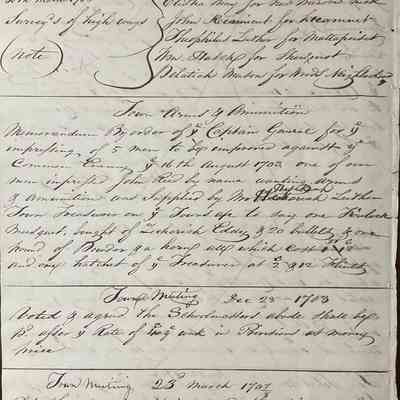 Survey's of high ways
(note)
John Rosament for Kecamuet
Theophilus Luther for Mattapoiset
Wm Hatch for Showomet
Pelatiah Mason for North Neighborhood
Town Arms & Ammunition
Memorandum By order of ye Captain General for ye
impressing of 5 men to be improved against ye
Common Enemy ye 16th August 1703 one of our
men imprest John Reed by name wanting Arms
& Ammunition was Supplied by Mr Hezekiah Luther
Town Treasurer on ye Towns acpt to say one Firelock
Musquet bought of Zechariah Eddy & 20 bullets & one
pound of Powder & a horn all which Cost
and one hatchet of ye Treasurer at 2 & 12 Flints
Town Meeting Dec 28 - 1703
Voted & agreed The Schoolmasters abode shall be
pd after ye Rate of and in Provisions at money
price
Town Meeting 23d March 1707